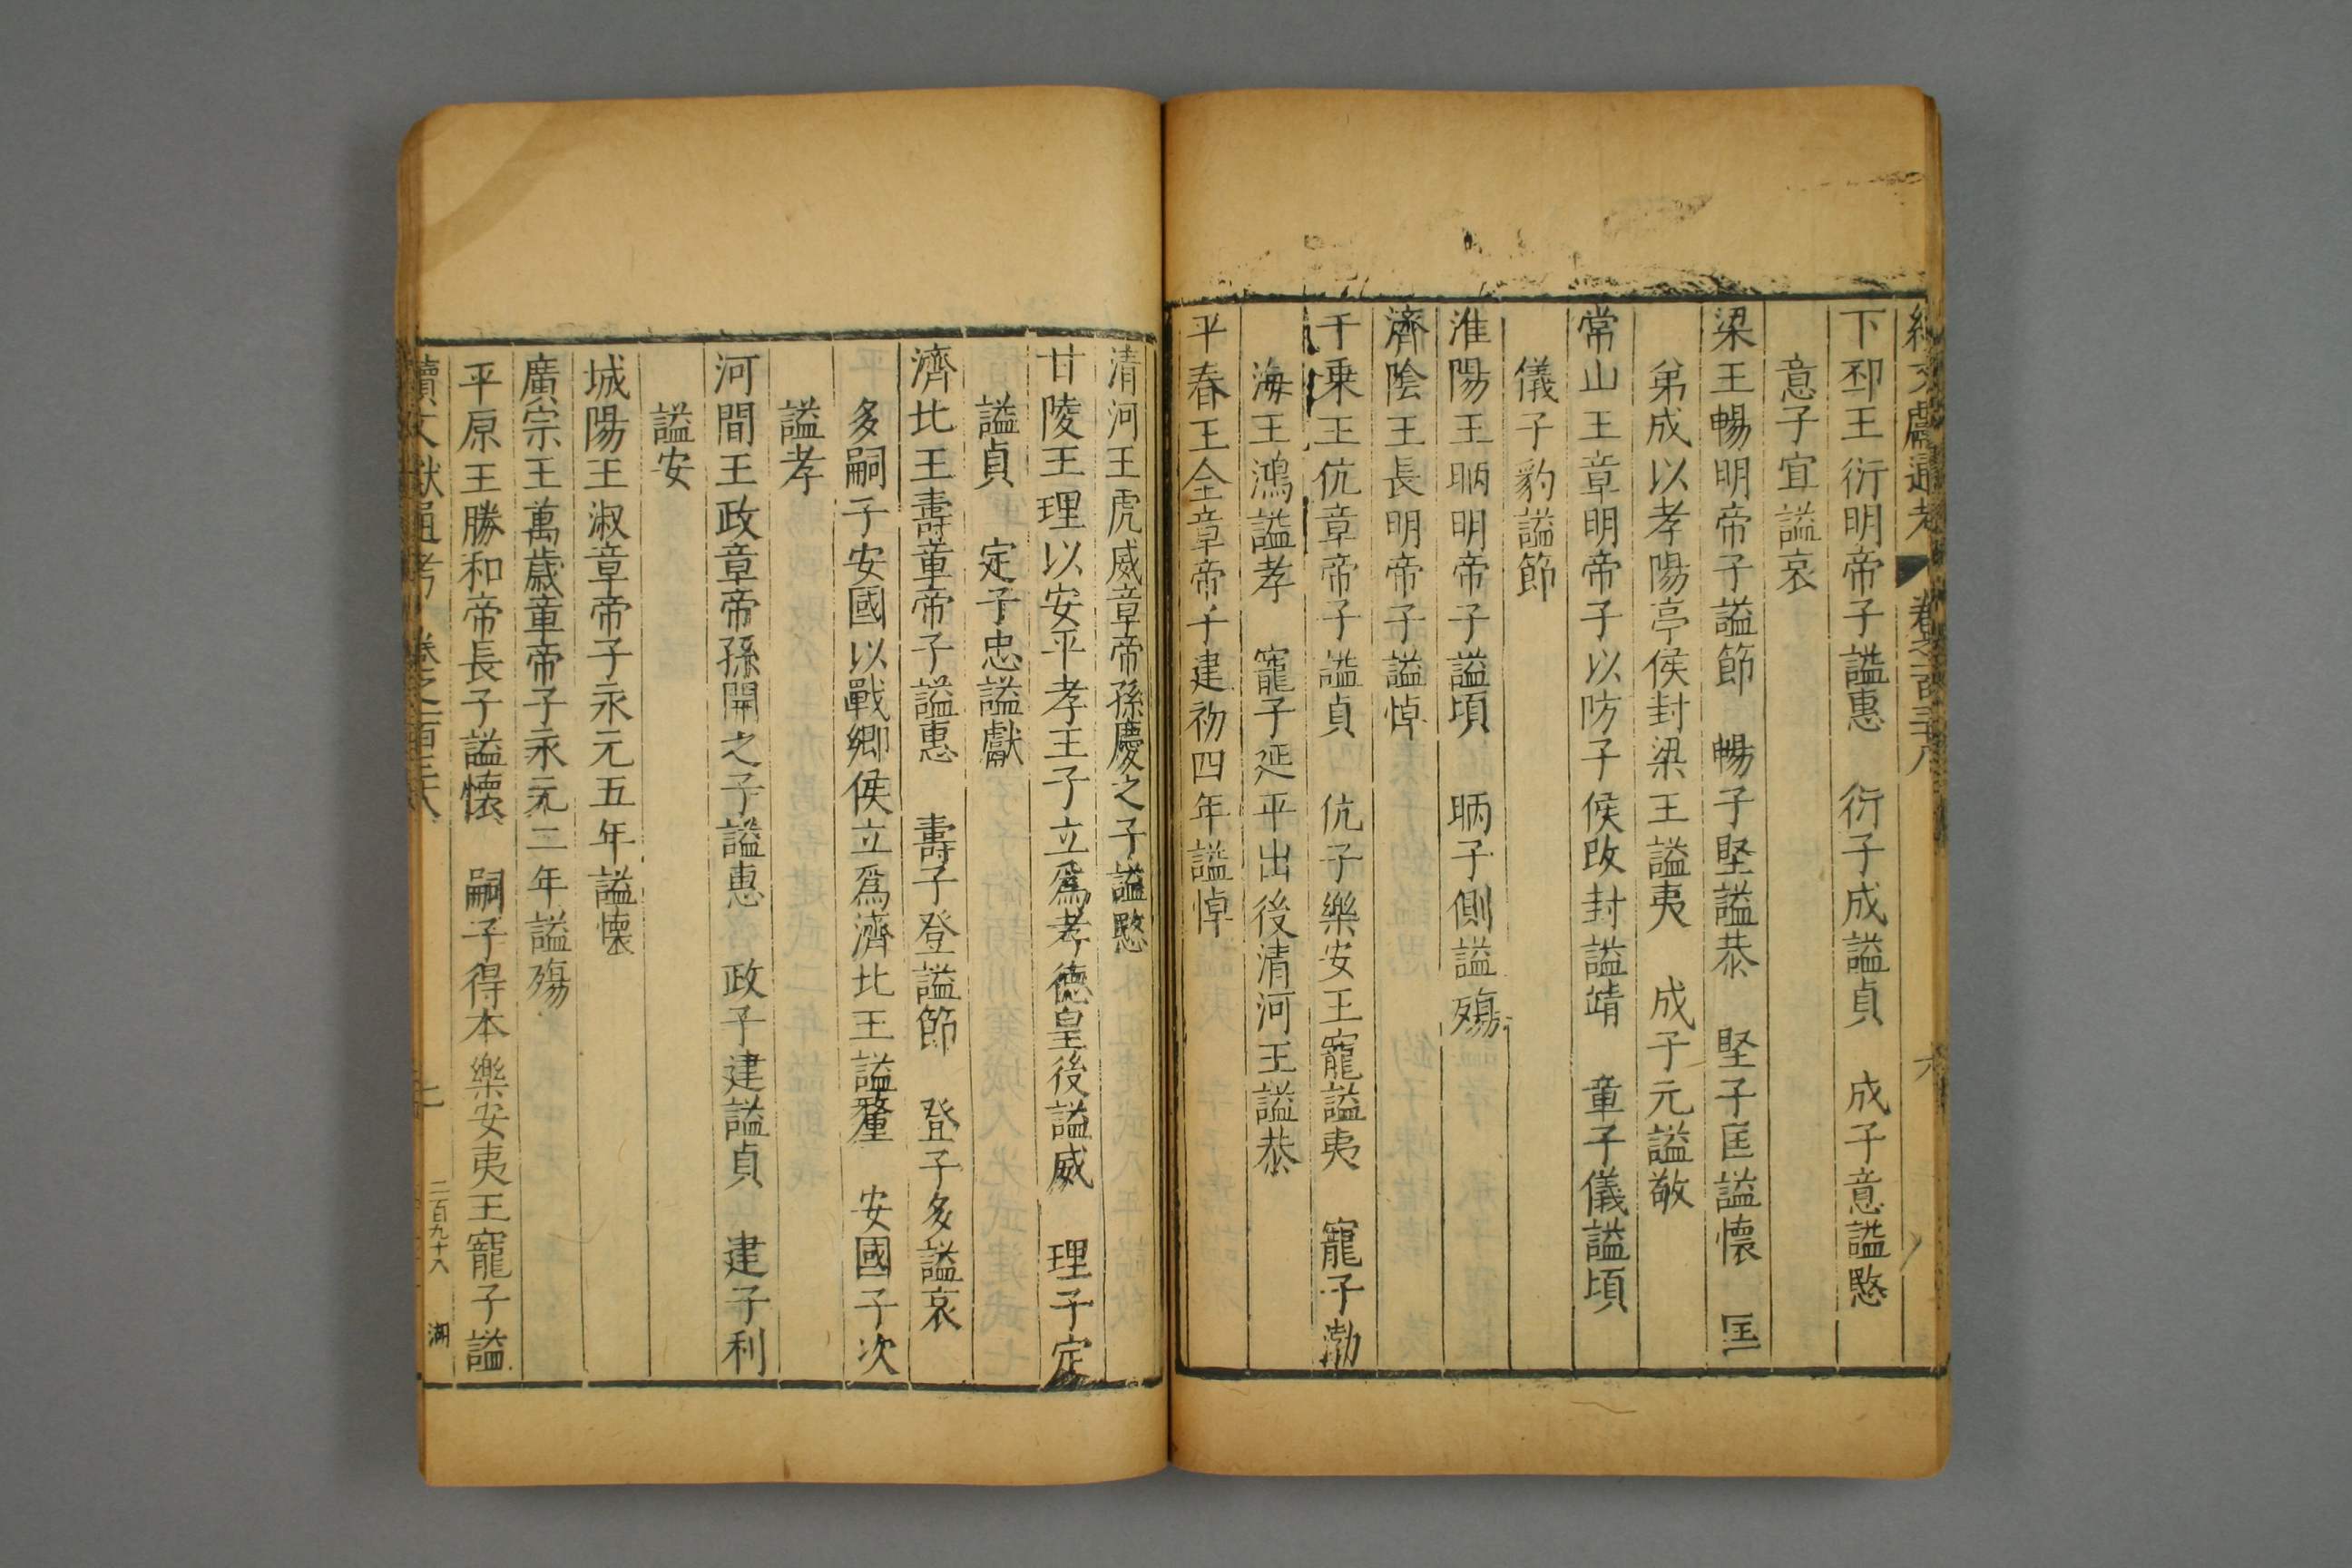 續文獻通考 卷之一百三十八 六
下邳王衍明帝子謚惠 衍子成謚貞 成子意謚愍
意子宜謚哀
梁王暢明帝子謚節 暢子堅謚恭 堅子匡謚懷 匡
弟成以孝陽亭侯封梁王謚夷 成子元謚敬
常山王章明帝子以防子侯改封謚靖 章子儀謚頃
儀子豹謚節
淮陽王昞明帝子謚頃 昞子側謚殤
濟陰王長明帝子謚悼
千乗王伉章帝子謚貞 伉子樂安王寵謚夷 寵子渤
海王鴻謚孝 寵子延平出後清河王謚恭
平春王全章帝子建初四年謚悼
清河王虎威章帝孫慶之子謚愍
甘陵王理以安平孝王子立爲孝德皇後謚威 理子定
謚貞 定子忠謚獻
濟北王壽章帝子謚惠 壽子登謚節 登子多謚哀
多嗣子安國以戰鄉侯立爲濟北王謚釐 安國子次
謚孝
河間王政章帝孫開之子謚惠 政子建謚貞 建子利
謚安
城陽王淑章帝子永元五年謚懷
廣宗王萬歳章帝子永元二年謚殤
平原王勝和帝長子謚懷 嗣子得本樂安夷王寵子謚
續文獻通考 卷之一百三十八 七 二百九十八 湖